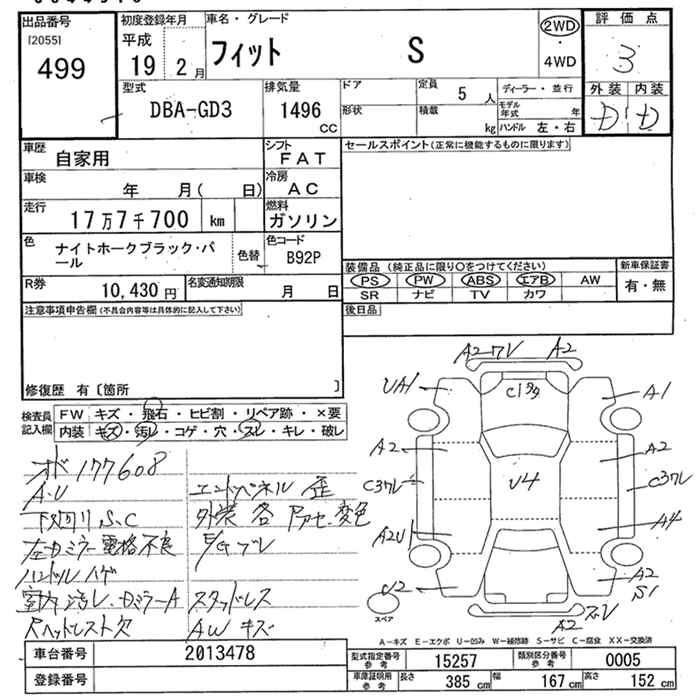 出品番号
[2055]
499
初度登録年月
平成
19 2 月
車名・グレード
フィット S
2WD
・
4WD
評価点
3
外装 内装
D D
型式
DBA-GD3
排気量
1496
CC
ドア
形状
定員
5 人
積載
kg
ディーラー・並行
モデル
年式 年
ハンドル 左・右
車歴
自家用
シフト
FAT
セールスポイント(正常に機能するものに限ります)
車検
年 月( 日)
冷房
AC
走行
17万7千700 km
燃料
ガソリン
色
ナイトホークブラック・パ
ール
色替
色コード
B92P
装備品 (純正品に限り〇をつけてください)
PS PW ABS エアB AW
SR ナビ TV カワ
新車保証書
有・無
R券
10,430 円
名変通知期限
月 日
後日品
注意事項申告欄(不具合内容等は具体的に記入して下さい)
修復歴 有〔箇所 〕
検査員
記入欄
FW キズ・飛石・ヒビ割・リペア跡・×要
内装 キズ・汚レ・コゲ・穴・スレ・キレ・破レ
オド177608
A.U
下廻リ,S.C
左Dミラー電格不良
ハンドルハゲ
室内汚レ.DミラーA
Rヘッドレスト欠
エンドパネル歪
外装各Pアセ.変色
E/Gブレ
スタッドレス
AWキズ
A2ワレ A2
UA1
C1タタ
A1
A2
A2
C3ワレ
U4
C3ワレ
A2U1
A4
U2
A2
S1
A2
スペア
A-キズ E-エクボ U-凹み W-補修跡 S-サビ C-腐食 XX-交換済
車台番号
2013478
登録番号
型式指定番号
参考
15257
類別区分番号
参考
0005
車庫証明用
参考
長さ
385 cm
幅
167 cm
高さ
152 cm